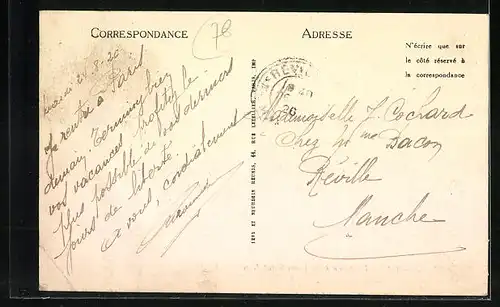 CORRESPONDANCE
78
ADRESSE
N'écrire que sur
le côté réservé à
la correspondance
21-8-26
Je rentre à Paris
demain. Terminez bien
vos vacances, profitez le
plus possible de vos derniers
jours de liberté.
A vous, cordialement
REVI
26
Mademoiselle J. Cochard
Chez Mme Dacon
Réville
Manche